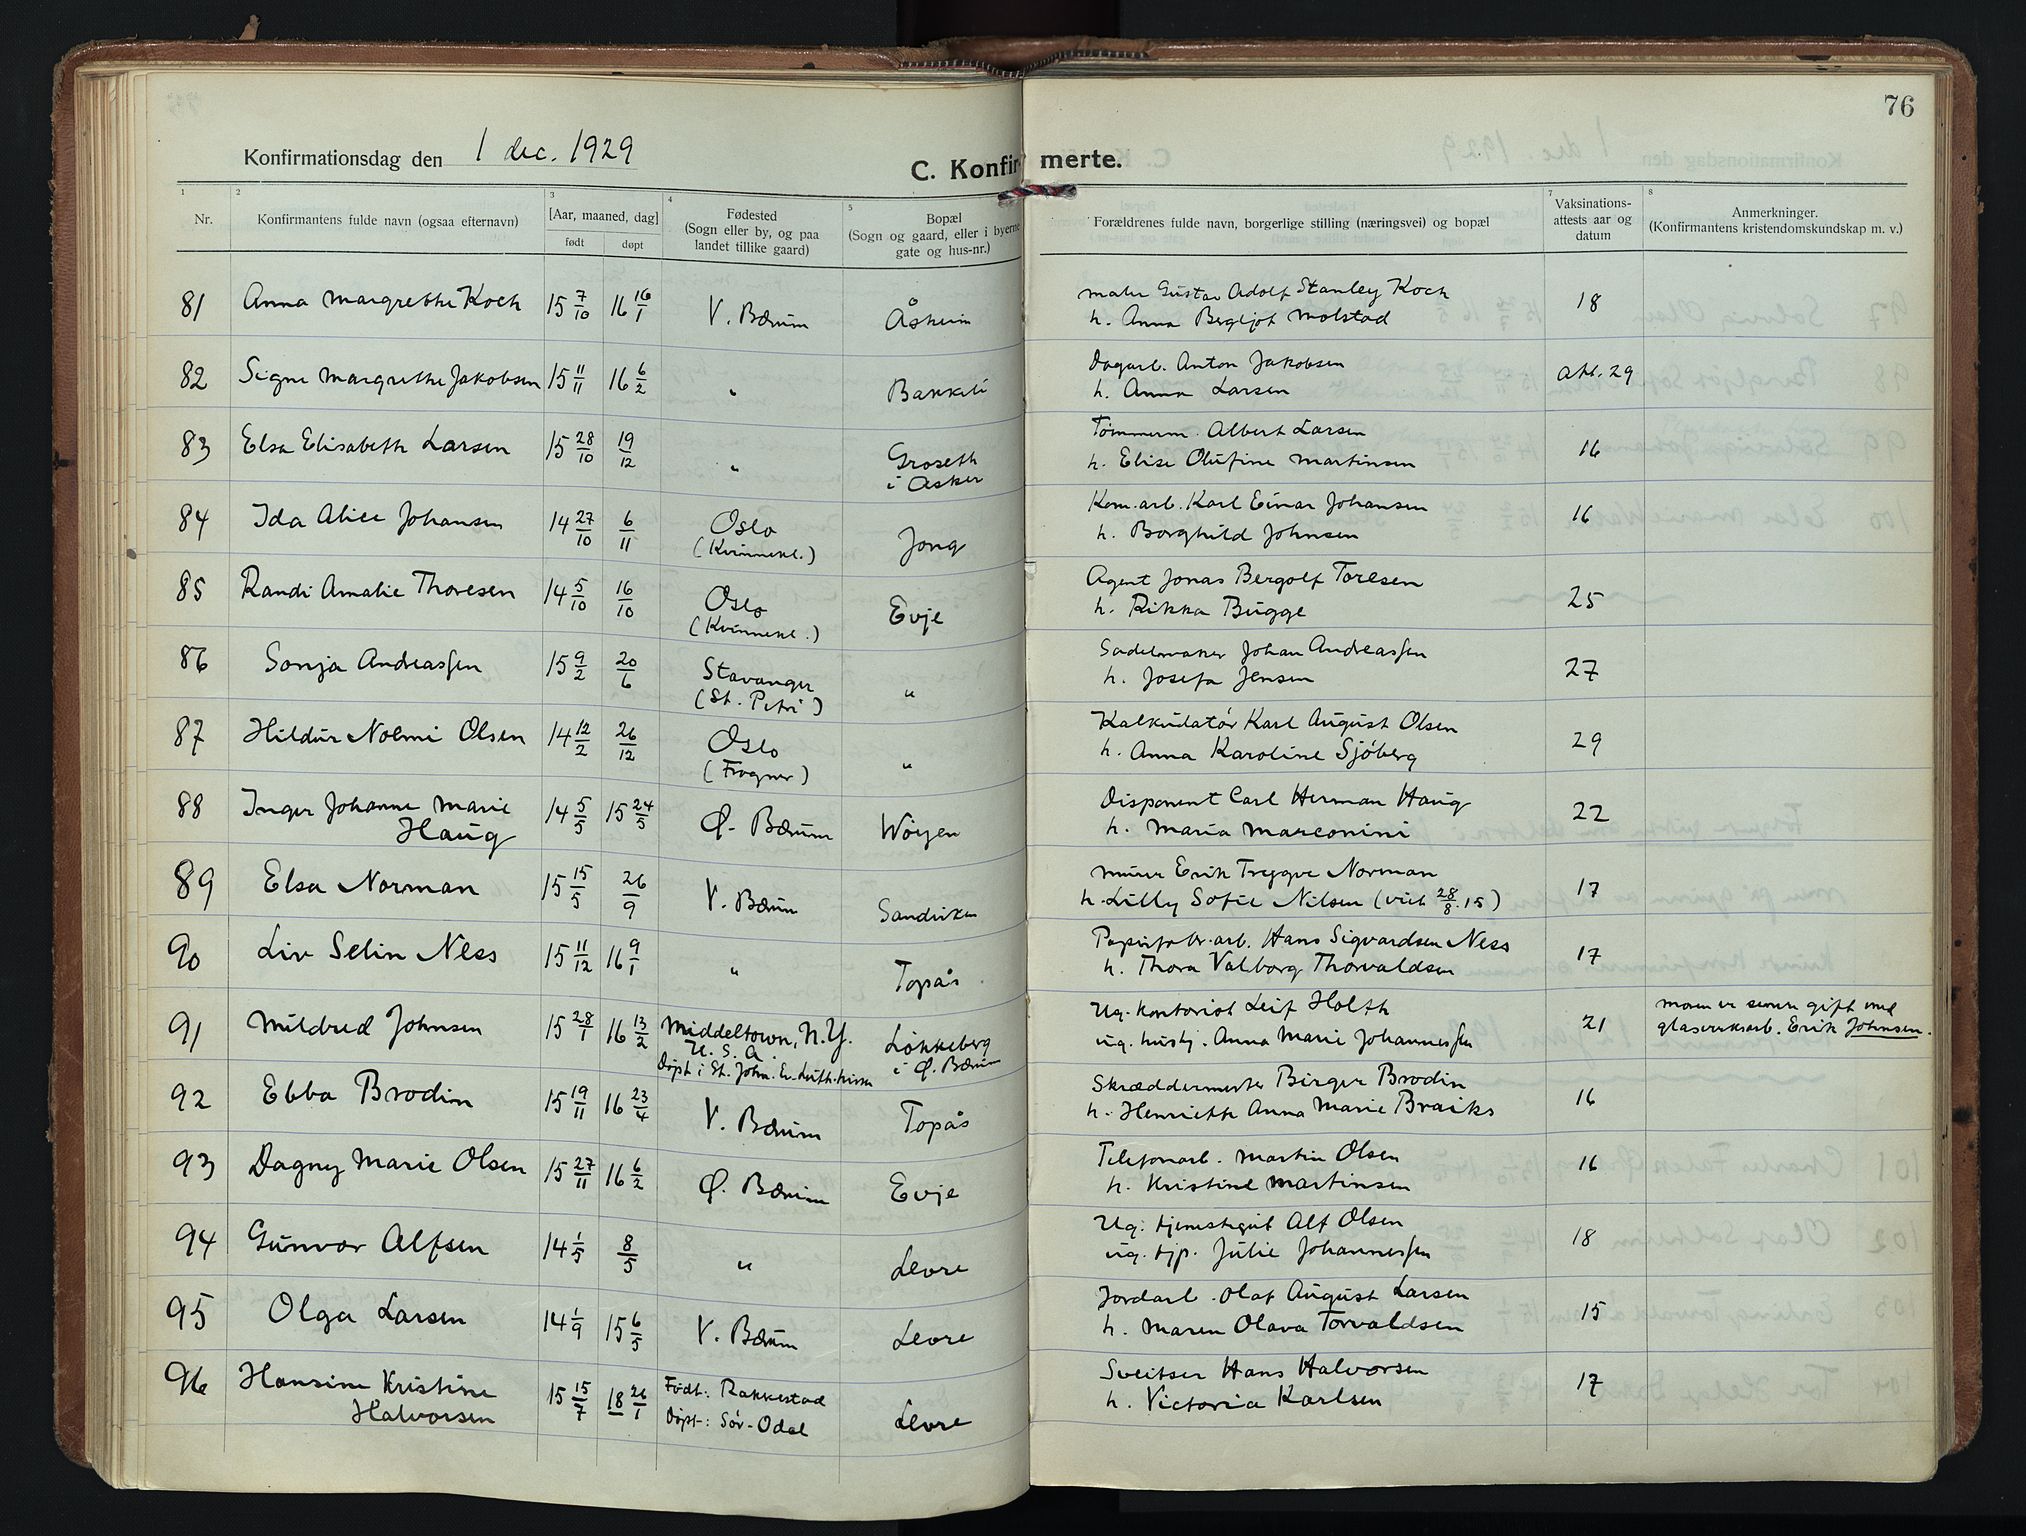 76
Konfirmationsdag den 1 dec. 1929
C. Konfirmerte.
1 2 3 4 5 7 8
Nr.
Konfirmantens fulde navn (ogsaa efternavn)
[Aar, maaned, dag]
født døpt
Fødested
(Sogn eller by, og paa
landet tillike gaard)
Bopæl
(Sogn og gaard, eller i byerne
gate og hus-nr.)
Forældrenes fulde navn, borgerlige stilling (næringsvei) og bopæl
Vaksinations-
attests aar og
datum
Anmerkninger.
(Konfirmantens kristendomskundskap m. v.)
81 Anna Margrethe Koch 15 7/10 16 16/1 V. Bærum Åsheim
maler Gustav Adolf Stanley Koch 18
h. Anna Bergljot Molstad
82 Signe Margrethe Jakobsen 15 11/11 16 6/2 " Bakkeli
Dagarb. Anton Jakobsen att. 29
h. Anna Larsen
83 Elsa Elisabeth Larsen 15 28/10 19/12 " Groseth
i Asker
Tømmerm. Albert Larsen 16
h. Elise Olufine Martinsen
84 Ida Alice Johansen 14 27/10 6/11 Oslo Jong
(Kvinnekl.)
Kom.arb. Karl Einar Johansen 16
h. Borghild Johnsen
85 Randi Amalie Thoresen 14 5/10 16/10 Oslo Evje
(Kvinnekl.)
Agent Jonas Bergolf Toresen 25
h. Rikka Bugge
86 Sonja Andreassen 15 9/2 20/6 Stavanger "
(St. Petri)
Sadelmaker Johan Andreassen 27
h. Josefa Jensen
87 Hildur Noemi Olsen 14 12/2 26/12 Oslo "
(Frogner)
Kalkulatør Karl August Olsen 29
h. Anna Karoline Sjøberg
88 Inger Johanne Marie 14 5/5 15 24/5 Ø. Bærum Wøyen
Haug
Disponent Carl Herman Haug 22
h. Maria Marconini
89 Elsa Norman 15 15/5 26/9 V. Bærum Sandviken
murer Erik Trygve Norman 17
h. Lilly Sofie Nilsen (viet 28/8.15)
90 Liv Selin Ness 15 11/12 16 9/1 " Topås
Papirfabr.arb. Hans Sigvardsen Ness 17
h. Thora Valborg Thorvaldsen
91 Mildred Johnsen 15 28/1 16 13/2 Middeltown, N.Y. Løkkeberg
U. S. A. i Ø. Bærum
Døpt i St. John. Ev. Luth. kirke
Ug. kontorist Leif Holth 21
ug. hushj. Anna Marie Johannessen
moren er senere gift med
glasverksarb. Erik Johnsen.
92 Ebba Brodin 15 19/11 16 23/4 V. Bærum Topås
Skræddermester Birger Brodin 16
h. Henriette Anna Marie Braiks
93 Dagny Marie Olsen 15 27/11 16 6/2 Ø. Bærum Evje
Telefonarb. Martin Olsen 16
h. Kristine Martinsen
94 Gunvor Alfsen 14 1/5 8/5 " Levre
Ug. tjenestegut Alf Olsen 18
ug. tjp. Julie Johannessen
95 Olga Larsen 14 1/9 15 6/5 V. Bærum Levre
Jordarb. Olaf August Larsen 15
h. Maren Olava Torvaldsen
96 Hansine Kristine 15 15/7 18 26/1 Født: Rakkestad Levre
Halvorsen Døpt: Sør-Odal
Sveitser Hans Halvorsen 17
h. Victoria Karlsen